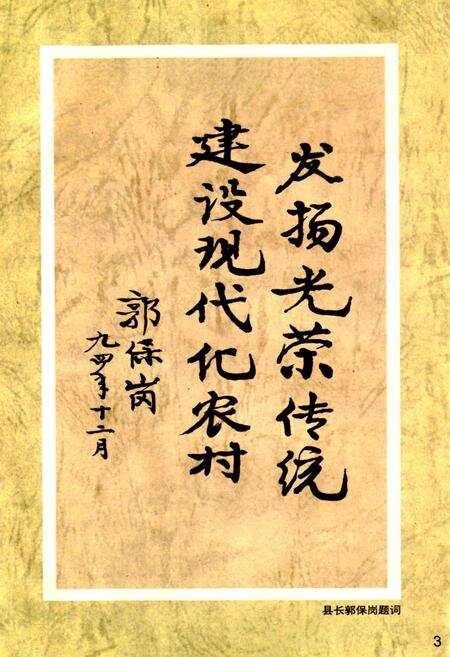 发扬光荣传统
建设现代化农村
郭保岗
九四年十二月
县长郭保岗题词
3